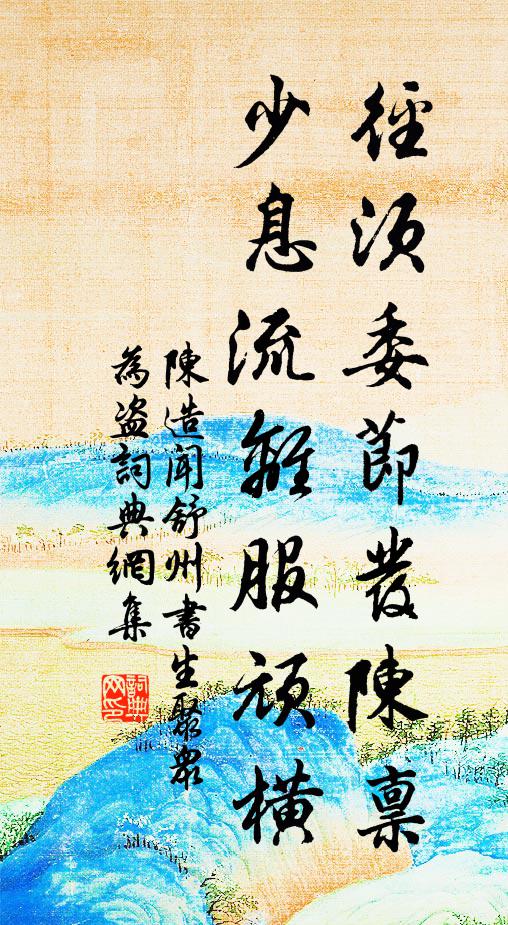 徑須委節發陳稟
少息流離服頑橫
陳造聞舒州書生聚眾
為盜詞典網集
詞典
网印